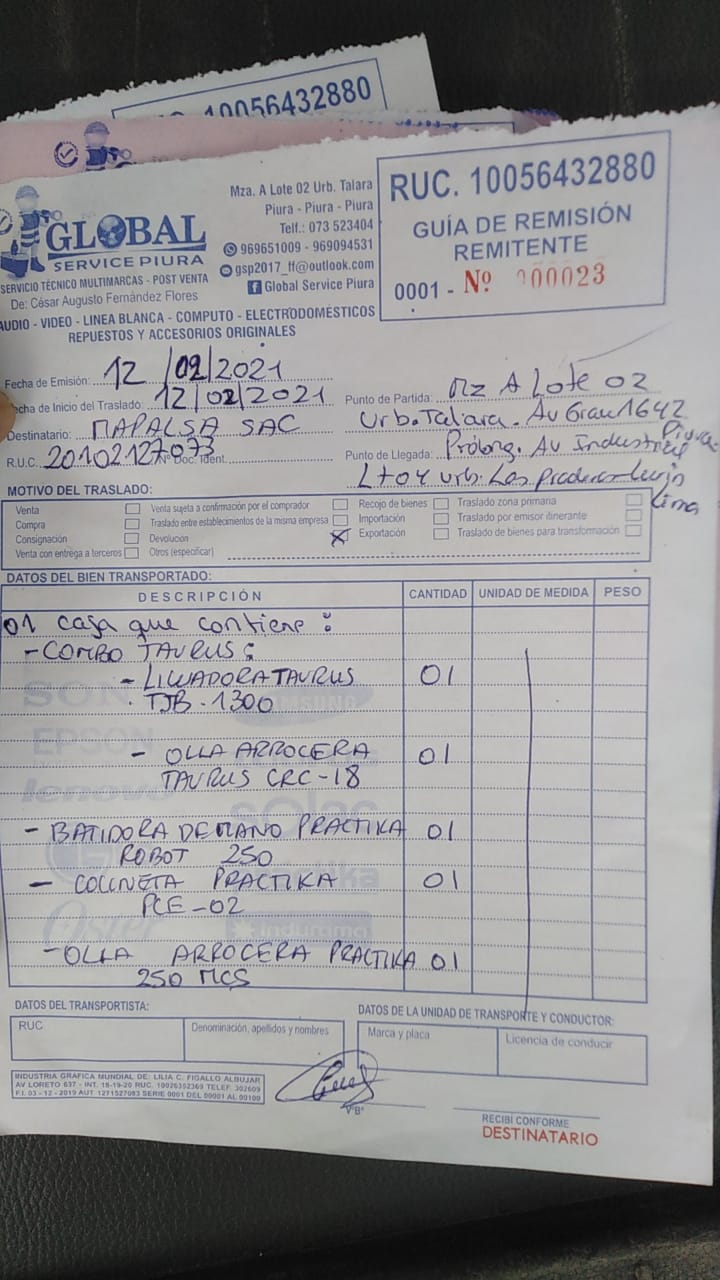 10056432880
GLOBAL
SERVICE PIURA
SERVICIO TÉCNICO MULTIMARCAS - POST VENTA
De: César Augusto Fernández Flores
AUDIO - VIDEO - LINEA BLANCA - COMPUTO - ELECTRODOMÉSTICOS
REPUESTOS Y ACCESORIOS ORIGINALES
Mza. A Lote 02 Urb. Talara
Piura - Piura - Piura
Telf.: 073 523404
969651009 - 969094531
gsp2017_ff@outlook.com
Global Service Piura
RUC. 10056432880
GUÍA DE REMISIÓN
REMITENTE
0001 - Nº 000023
Fecha de Emisión: 12/02/2021
Fecha de Inicio del Traslado: 12/02/2021
Destinatario: MAPALSA SAC
R.U.C. 20102127073 Nº Doc. Ident.
Punto de Partida: Mz A Lote 02
Urb. Talara. Av Grau 1642
Piura
Punto de Llegada: Prolong. Av Industrial
Lt 04 urb. Las praderas Lurin
Lima
MOTIVO DEL TRASLADO:
Venta
Compra
Consignación
Venta con entrega a terceros
Venta sujeta a confirmación por el comprador
Traslado entre establecimientos de la misma empresa
Devolucion X
Otros (especificar)
Recojo de bienes
Importación
Exportación
Traslado zona primaria
Traslado por emisor itinerante
Traslado de bienes para transformación
DATOS DEL BIEN TRANSPORTADO:
DESCRIPCIÓN CANTIDAD UNIDAD DE MEDIDA PESO
01 caja que contiene :
- COMBO TAURUS :
- LICUADORA TAURUS 01
TJB - 1300
- OLLA ARROCERA 01
TAURUS CRC-18
- BATIDORA DE MANO PRACTIKA 01
ROBOT 250
- COCINETA PRACTIKA 01
PCE-02
- OLLA ARROCERA PRACTIKA 01
250 MCS
SONY
SAMSUNG
EPSON
lenovo
Oster
indurama
DATOS DEL TRANSPORTISTA:
RUC
Denominación, apellidos y nombres
DATOS DE LA UNIDAD DE TRANSPORTE Y CONDUCTOR:
Marca y placa
Licencia de conducir
INDUSTRIA GRAFICA MUNDIAL DE: LILIA C. FIGALLO ALBUJAR
AV LORETO 637 - INT. 18-19-20 RUC. 10026352369 TELEF. 302609
F.I. 03 - 12 - 2019 AUT. 1271527083 SERIE 0001 DEL 00001 AL 00100
VºBº
RECIBI CONFORME
DESTINATARIO